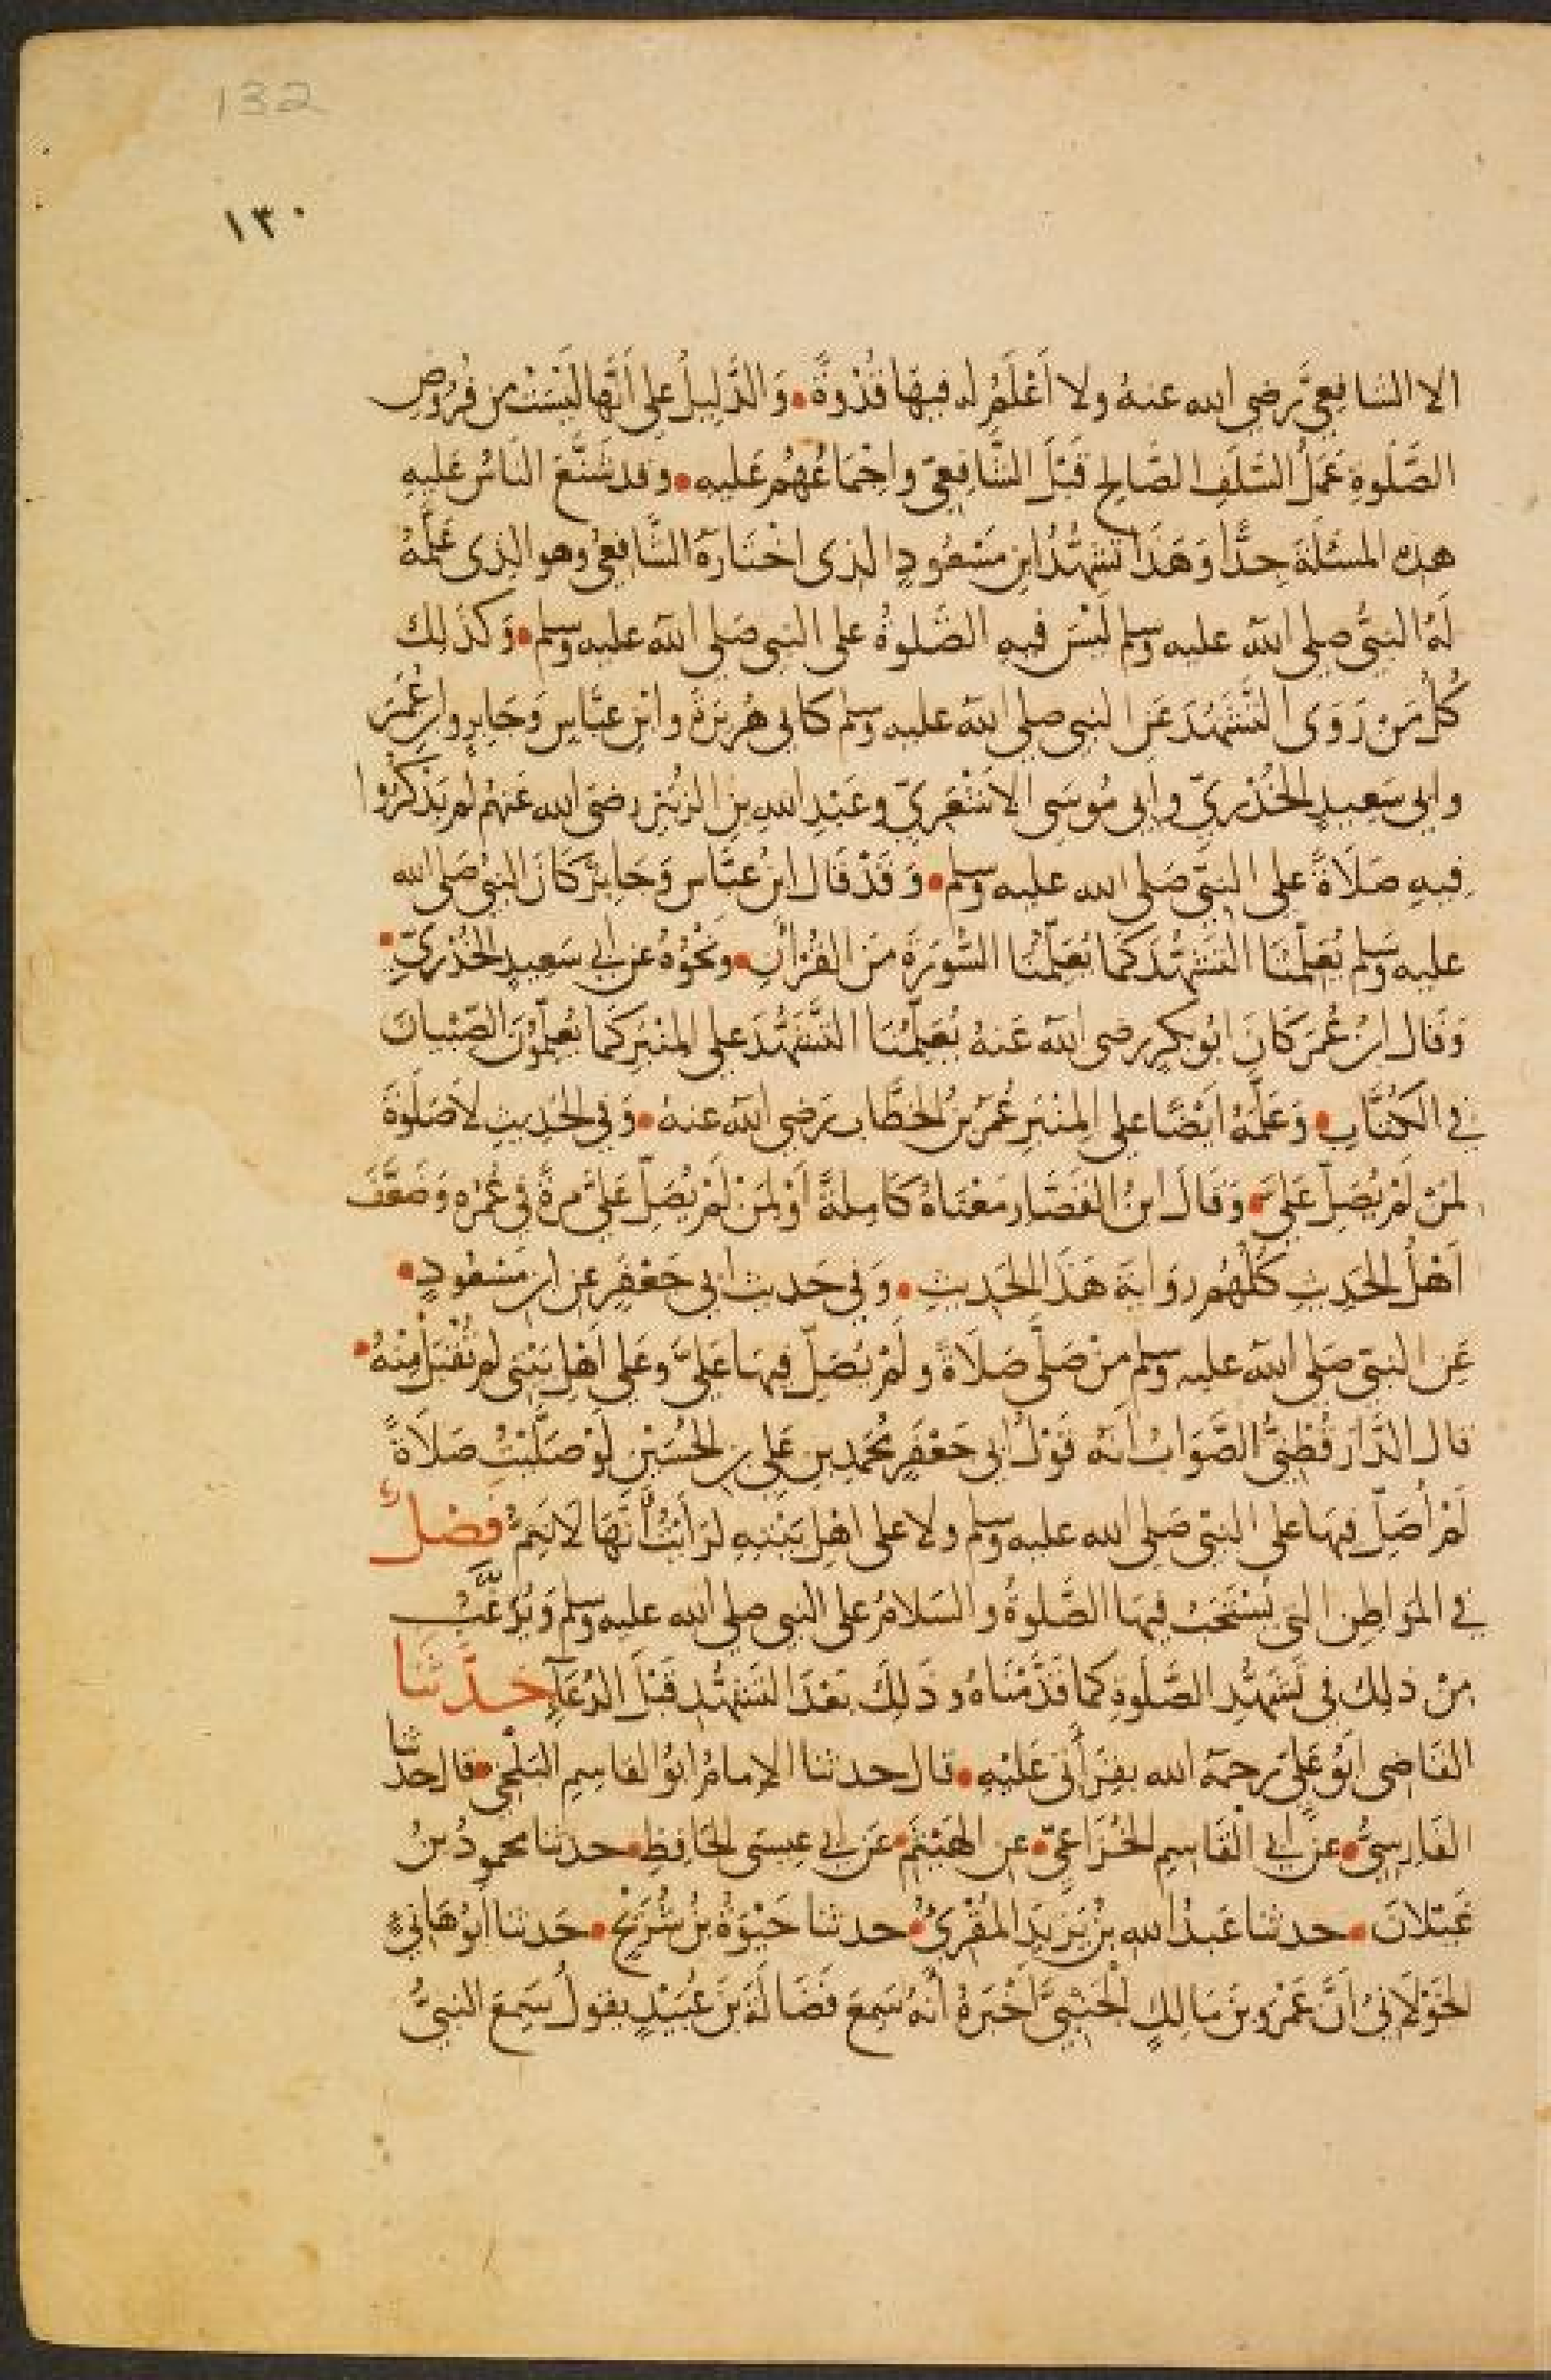 132
١٣٠
الا الشافِعِيَّ رضي الله عنهُ ولا أَعْلَمُ له فيها قُدْوَةً • وَالدَّلِيلُ على أَنَّها لَيْسَتْ من فُرُوضِ
الصَّلٰوةِ عَمَلُ السَّلَفِ الصَّالِحِ قَبْلَ الشَّافِعِيّ وإِجْمَاعُهُم عَليهِ • وَقد شَنَّعَ النَاسُ عَليهِ
هذه المسْئَلَةَ جِدًّا وَهَذَا تَشَهُّدُ ابنِ مَسْعُودٍ الذى اخْتَارَهُ الشَّافِعِىُّ وهو الذى عَلَّمَهُ
لَهُ النبيُّ صلى الله عليه وسلم لَيْسَ فيهِ الصَّلوةُ على النبى صَلى الله عليه وسلم • وَكذلِكَ
كُلُّ مَنْ رَوَى التَّشَهُّدَ عَنِ النبى صلى الله عليه وسلم كابى هُرَيْرَةَ وابْنِ عبَّاسٍ وَجَابِرٍ وابنِ عُمَرَ
وابى سَعِيدٍ الخُدْرِيّ وابى مُوسَى الاَشْعَرِيّ وعَبْدِ اللهِ بنِ الزُّبَيْر رضىَ الله عَنهُم لم يَذْكُرُوا
فيهِ صَلَاةً على النبىّ صَلى الله عليه وسلم • وَقَدْ قَال ابنُ عبَّاس وَجَابِرٌ كَانَ النبىُّ صَلى الله
عليه وسلم يُعَلِّمُنَا التَشَهُّدَ كَمَا يُعَلِّمُنَا السُّورَةَ مِنَ القُرْآنِ • ونَحْوُهُ عن ابى سَعِيدٍ الخُدْرِىّ •
وَقَال ابنُ عُمَرَ كَانَ ابُو بكرٍ رضى الله عَنهُ يُعَلِّمُنَا التَّشَهُّدَ على المِنْبَرِ كَمَا يُعَلِّمُونَ الصِّبْيانَ
فى الكُتَّابِ • وَعَلَّمَهُ ايْضًا على المِنْبَرِ عُمَرُ بنُ الخطَّابِ رَضِى الله عنهُ • وَفى الحَدِيثِ لاَ صَلٰوةَ
لمَنْ لَمْ يُصَلِّ عَلَىَّ • وَقَالَ ابنُ القَصَّارِ مَعْنَاهُ كَامِلَةً أَوْ لِمَنْ لَمْ يُصَلِّ عَلَىَّ مرةً فى عُمْرِه وَضَعَّفَ
اَهْلُ الحَدِيثِ كُلُّهُم رِوَايَةَ هَذَا الحَدِيثِ • وَفى حَدِيث ابى جَعْفَرٍ عنِ ابنِ مَسْعُودٍ •
عَنِ النبىّ صَلى الله عليه وسلم منْ صَلَّى صَلَاةً ولَمْ يُصَلِّ فِيهَا عَلَىَّ وعَلى اَهْلِ بَيْتى لم تُقْبَلْ مِنْهُ •
قال الدَّارَقُطْنِىُّ الصَّوَابُ انَهُ قَوْلُ ابى جَعْفَرٍ مُحَمَّدِ بنِ عَلى بنِ الحُسَيْنِ لَوْ صَلَّيْتُ صَلَاةً
لَمْ أُصَلِّ فِيهَا عَلى النبىّ صَلى الله عليه وسلم ولا على اهْلِ بَيْتِهِ لرَأَيْتُ أَنَّهَا لَا تَتِمُّ فَصْلٌ
فى المَوَاطِنِ التى يُسْتَحَبُّ فِيهَا الصَّلوةُ والسَلامُ على النبى صلى الله عليه وسلم وَيُرَغَّبُ
مِنْ ذلِكَ فى تَشَهُّدِ الصَّلٰوةِ كما قَدَّمْنَاهُ وذَلِكَ بَعْدَ التَّشَهُّدِ قَبْلَ الدُّعَآءِ حَدَّثَنَا
القَاضِى ابُو عَلىٍّ رحِمَهُ الله بِقِرَآتى عَلَيْهِ • قال حدثنا الإمامُ ابُو القاسِمِ البَلْخِىُّ • قال حدثنا
الفَارِسِىُّ • عنْ ابى الْقَاسِمِ الخُزَاعِىّ • عن الهَيْثَمِ • عَنْ ابى عِيسَى الحَافِظِ • حدثنا محمودُ بنُ
غَيْلَانَ • حدثنا عَبدُ الله بنُ يَزِيدَ المُقْرِئُ • حدثنا حَيْوَةُ بنُ شُرَيْحٍ • حَدثنا أبُو هَانِئٍ
الخَوْلَانِىُّ انَّ عَمْرَو بنَ مَالِكٍ الجَنْبِىَّ اَخْبَرَهُ أَنَّهُ سَمِعَ فَضَالَةَ بنَ عُبَيْدٍ يقولُ سَمِعَ النبىُّ